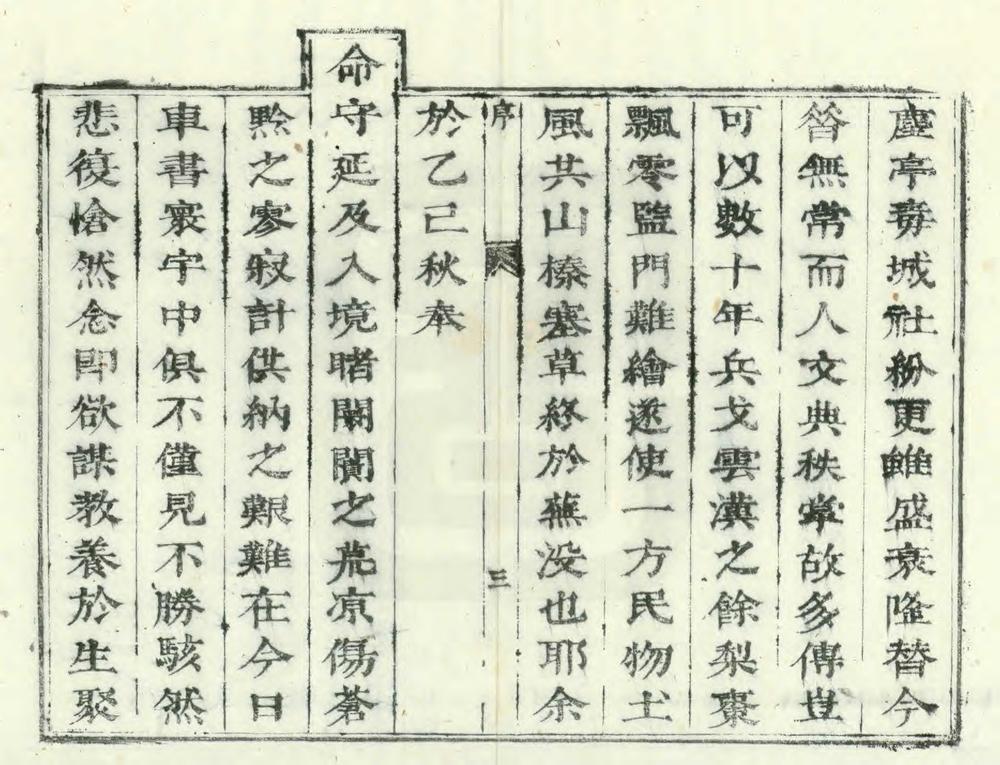 塵亭毒城社粉更雖盛衰隆替今
昝無常而人文典秩掌故多傳豈
可以數十年兵戈雲漢之餘梨棗
飄零監門難繪遂使一方民物土
風共山榛塞草終於蕪没也耶余
序 三
於乙己秋奉
命守延及入境睹闤闠之荒凉傷蒼
黔之寥寂計供納之艱難在今日
車書寰宇中俱不僅見不勝駭然
悲復愴然念即欲謀教養於生聚